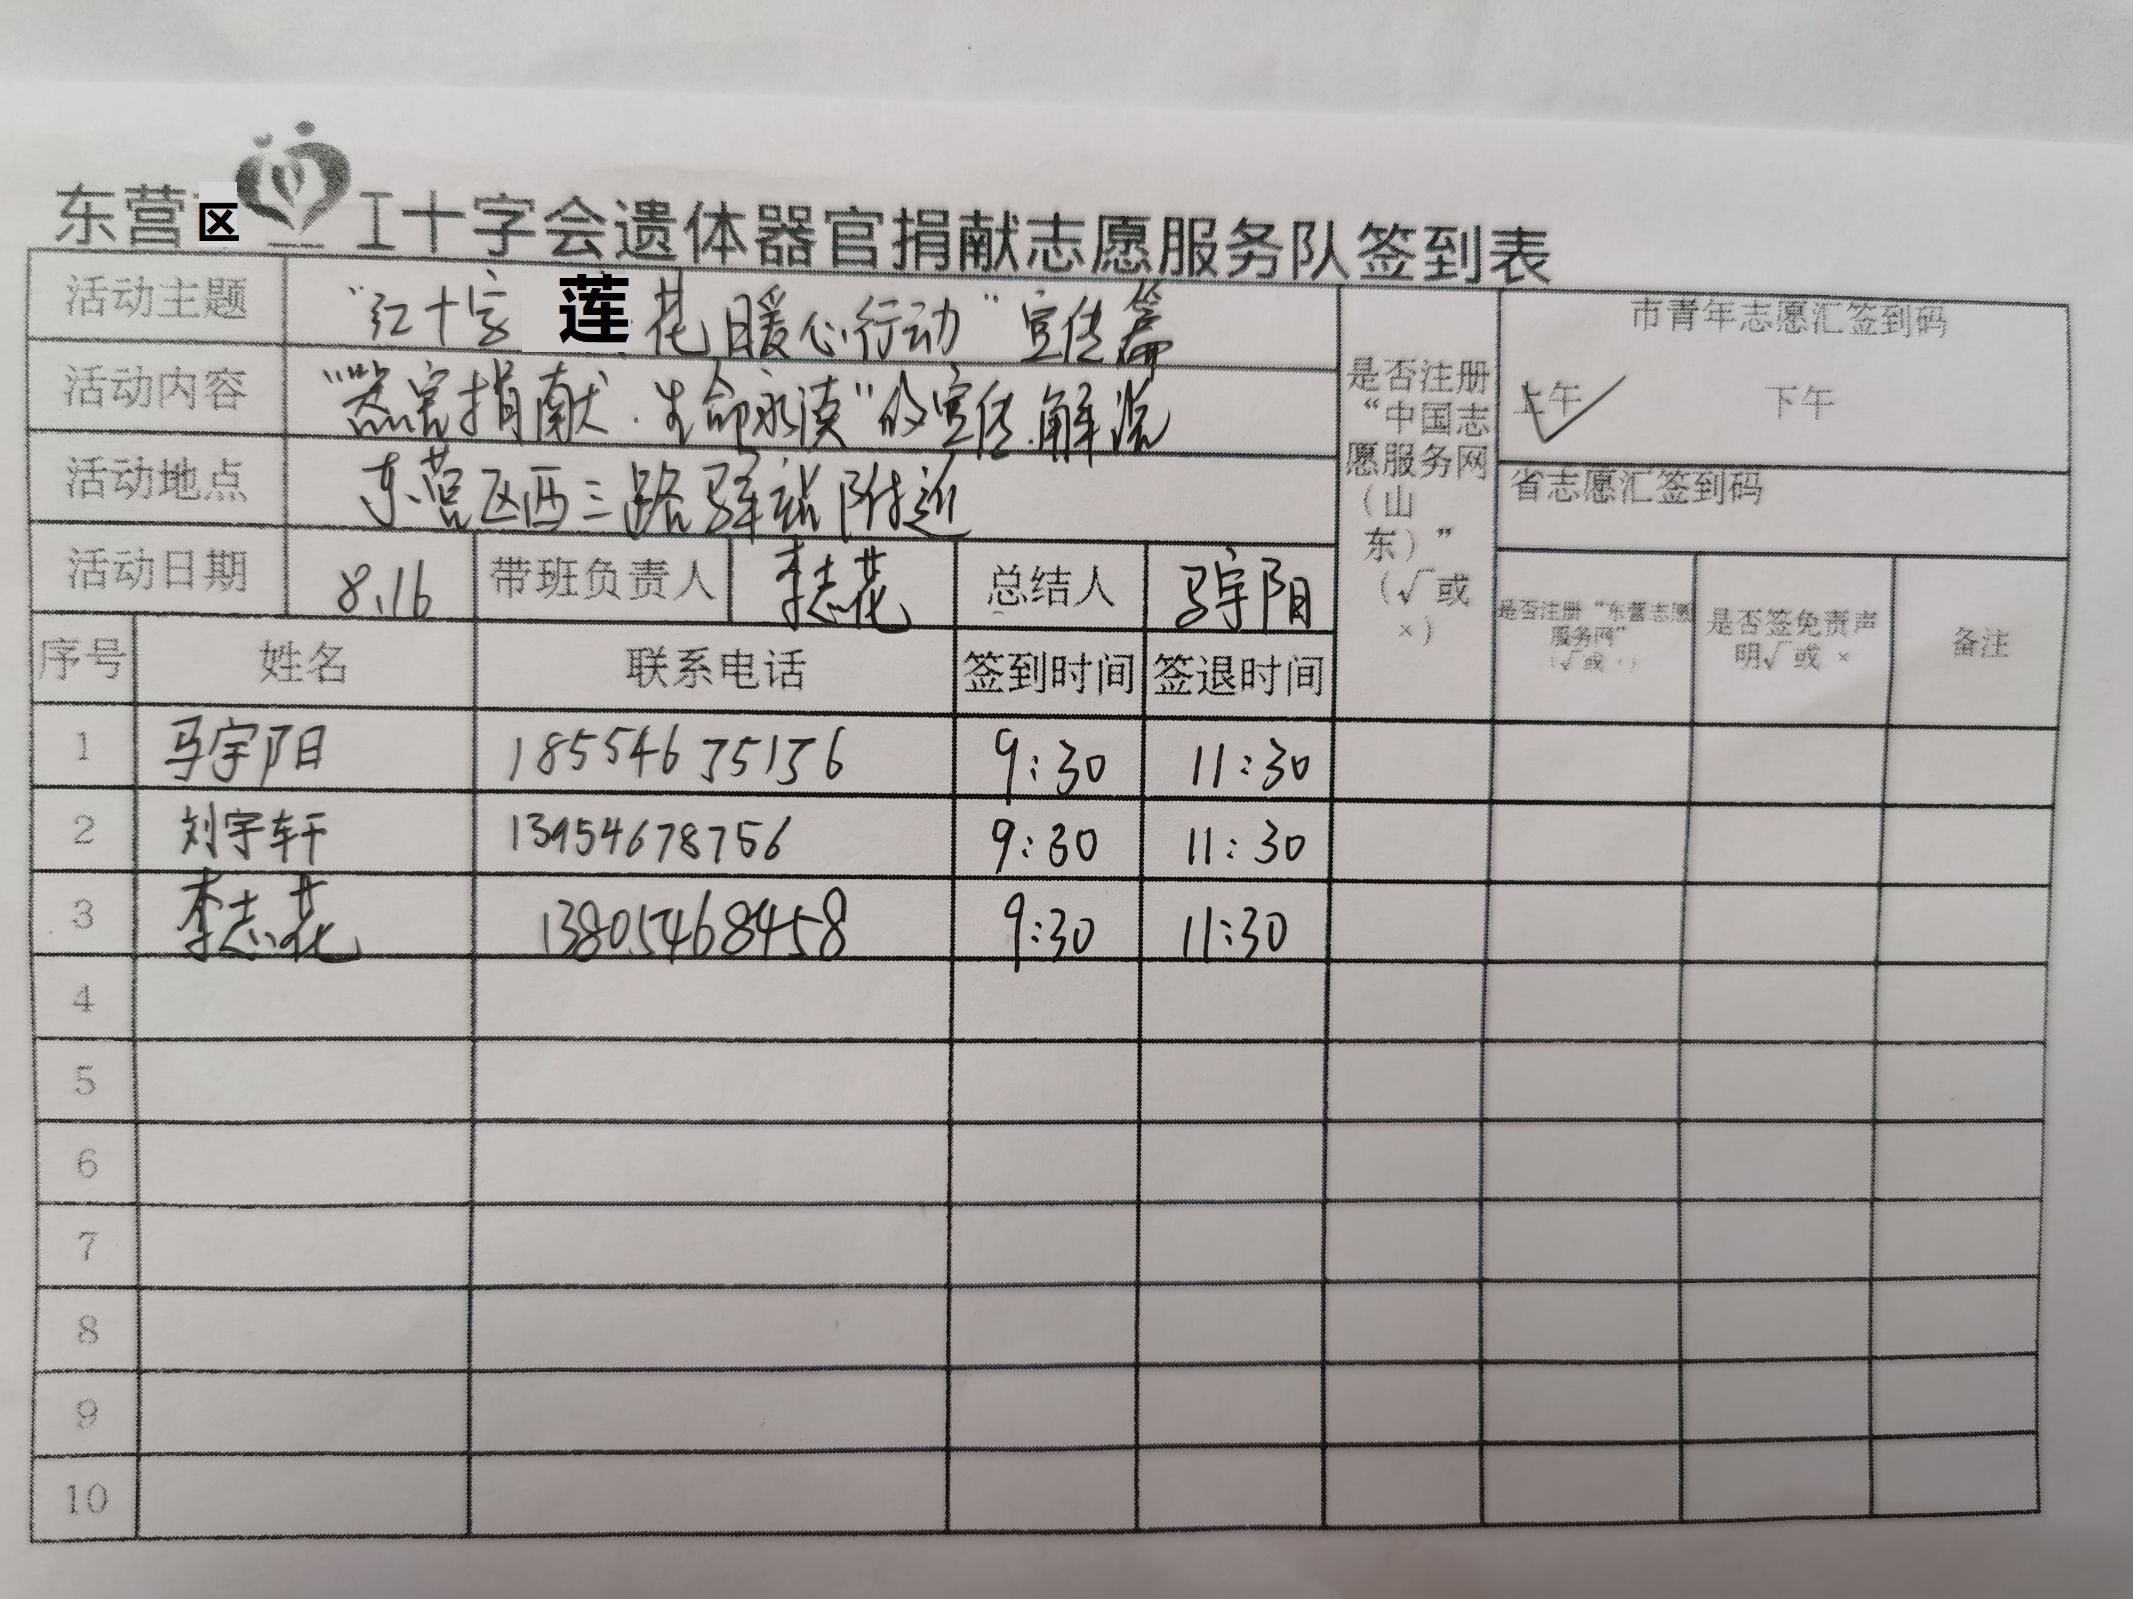 东营区 工十字会遗体器官捐献志愿服务队签到表
活动主题 "红十字 莲花暖心行动"宣传篇
活动内容 "器官捐献.生命永续"的宣传.解说
活动地点 东营区西三路驿站附近
活动日期 8.16 带班负责人 李志花 总结人 马宇阳
是否注册
"中国志
愿服务网
(山
东)"
(√或
×)
市青年志愿汇签到码
上午 下午
省志愿汇签到码
是否注册"东营志愿
服务网"
(√或×)
是否签免责声
明√或 ×
备注
序号 姓名 联系电话 签到时间 签退时间
1 马宇阳 18554675156 9:30 11:30
2 刘宇轩 13954678756 9:30 11:30
3 李志花 13805468458 9:30 11:30
4
5
6
7
8
9
10